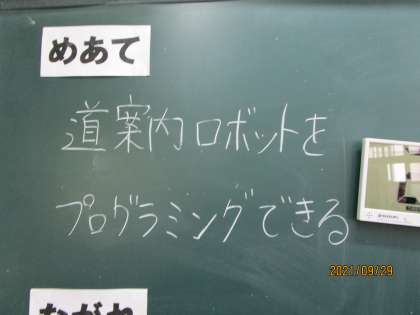 めあて
道案内ロボットを
プログラミングできる
2021/09/29
ながれ